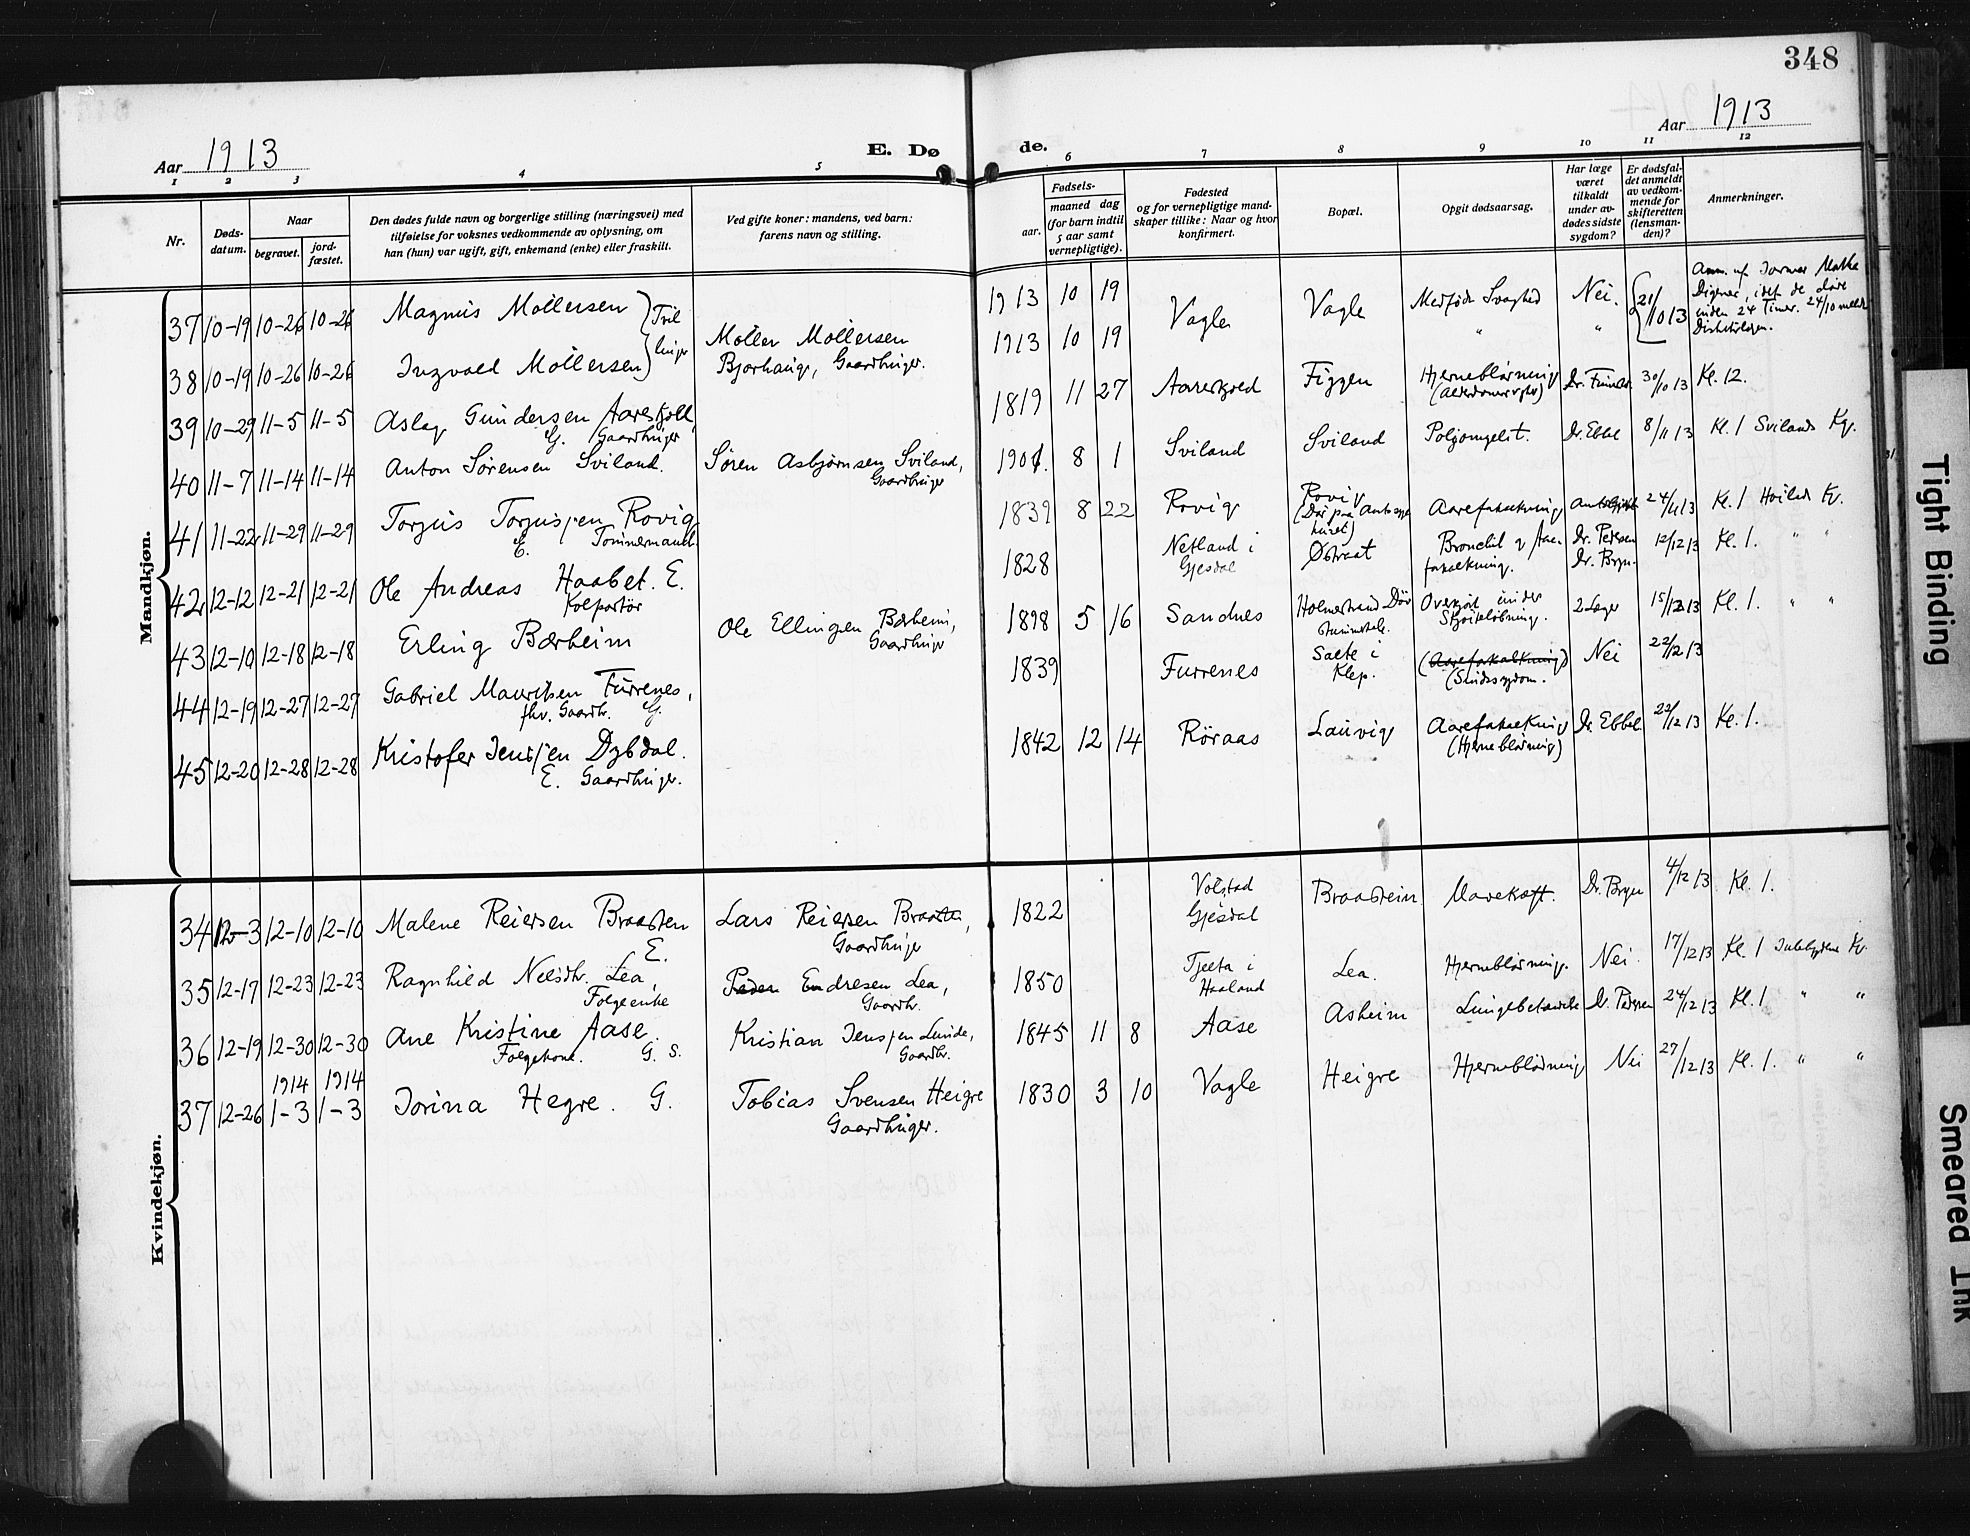 348
Aar 1913
E. Dø
de.
Aar 1913
1 2 3 4 5 6 7 8 9 10 11 12
Nr.
Døds-
datum.
Naar
begravet.
jord-
fæstet.
Den dødes fulde navn og borgerlige stilling (næringsvei) med
tilføielse for voksnes vedkommende av oplysning, om
han (hun) var ugift, gift, enkemand (enke) eller fraskilt.
Ved gifte koner: mandens, ved barn:
farens navn og stilling.
Fødsels-
aar.
maaned dag
(for barn indtil
5 aar samt
vernepligtige).
Fødested
og for vernepligtige mand-
skaper tillike: Naar og hvor
konfirmert.
Bopæl.
Opgit dødsaarsag.
Har læge
været
tilkaldt
under av-
dødes sidste
sygdom?
Er dødsfal-
det anmeldt
av vedkom-
mende for
skifteretten
(lensman-
den)?
Anmerkninger.
Mandkjøn.
37 10-19 10-26 10-26 Magnus Møllersen Tvil 1913 10 19 Vagle Vagle Medfødt Svaghed Nei. 21/10 13
inden 24 Timer. 24/10
38 10-19 10-26 10-26 Ingvald Møllersen linger Møller Møllersen
Bjorhaug, Gaardbruger. 1913 10 19 " "
39 10-29 11-5 11-5 Aslag Gundersen Aareskjold,
G. Gaardbruger 1819 11 27 Aareskjold Figgen Hjerneblødning 30/10 13 Kl. 12.
40 11-7 11-14 11-14 Anton Sørensen Sviland. Søren Asbjørnsen Sviland,
Gaardbruger 1901. 8 1 Sviland Sviland Dr. Ebbel 8/11 13 Kl. 1 Svilands Kg.
41 11-22 11-29 11-29 Torgius Torgiussen Rovig
E. Tømmermand. 1839 8 22 Rovig Rovig Aareforkalkning 24/11 13 Kl. 1
42 12-12 12-21 12-21 Ole Andreas Haabet. E.
Kolportør 1828 Netland i
Gjesdal Østraat Dr. Petersen
Dr. Bryn. 12/12 13 Kl. 1. " "
43 12-10 12-18 12-18 Erling Bærheim Ole Ellingsen Bærheim,
Gaardbruger 1898 5 16 Sandnes Overkjørt under
Skøiteløbning. 2 Læger 15/12 13 Kl. 1. " "
44 12-19 12-27 12-27 Gabriel Mauritsen Furrenes,
fhv. Gaardbr. G. 1839 Furrenes Salte i
Klep. (Aareforkalkning)
(Sindssygdom. Nei 22/12 13
45 12-20 12-28 12-28 Kristofer Jenssen Dybdal.
E. Gaardbruger. 1842 12 14 Røraas Lauvig Aareforkalkning
(Hjerneblødning) Dr. Ebbel 22/12 13 Kl. 1.
Kvindekjøn.
34 12-3 12-10 12-10 Malene Reiersen Braasten
E. Lars Reiersen Braasten,
Gaardbruger 1822 Volstad
Gjesdal Braastein Mavekræft. Dr. Bryn 4/12 13 Kl. 1.
35 12-17 12-23 12-23 Ragnhild Neelsdtr. Lea,
Folgeenke Peder Endresen Lea,
Gaardbr. 1850 Tjelta i
Haaland Lea. Hjerneblødning. Nei. 17/12 13 Kl. 1
36 12-19 12-30 12-30 Ane Kristine Aase
Folgekone. G. S. Kristian Jenssen Lunde,
Gaardbr. 1845 11 8 Aase Asheim Lungebetændelse Dr. Petersen 24/12 13 Kl. 1 " "
37 12-26 1914 1-3 1914 1-3 Jorina Hegre. G. Tobias Svensen Heigre
Gaardbruger. 1830 3 10 Vagle Heigre Hjerneblødning Nei 27/12 13 Kl. 1. " "
Tight Binding
Smeared Ink